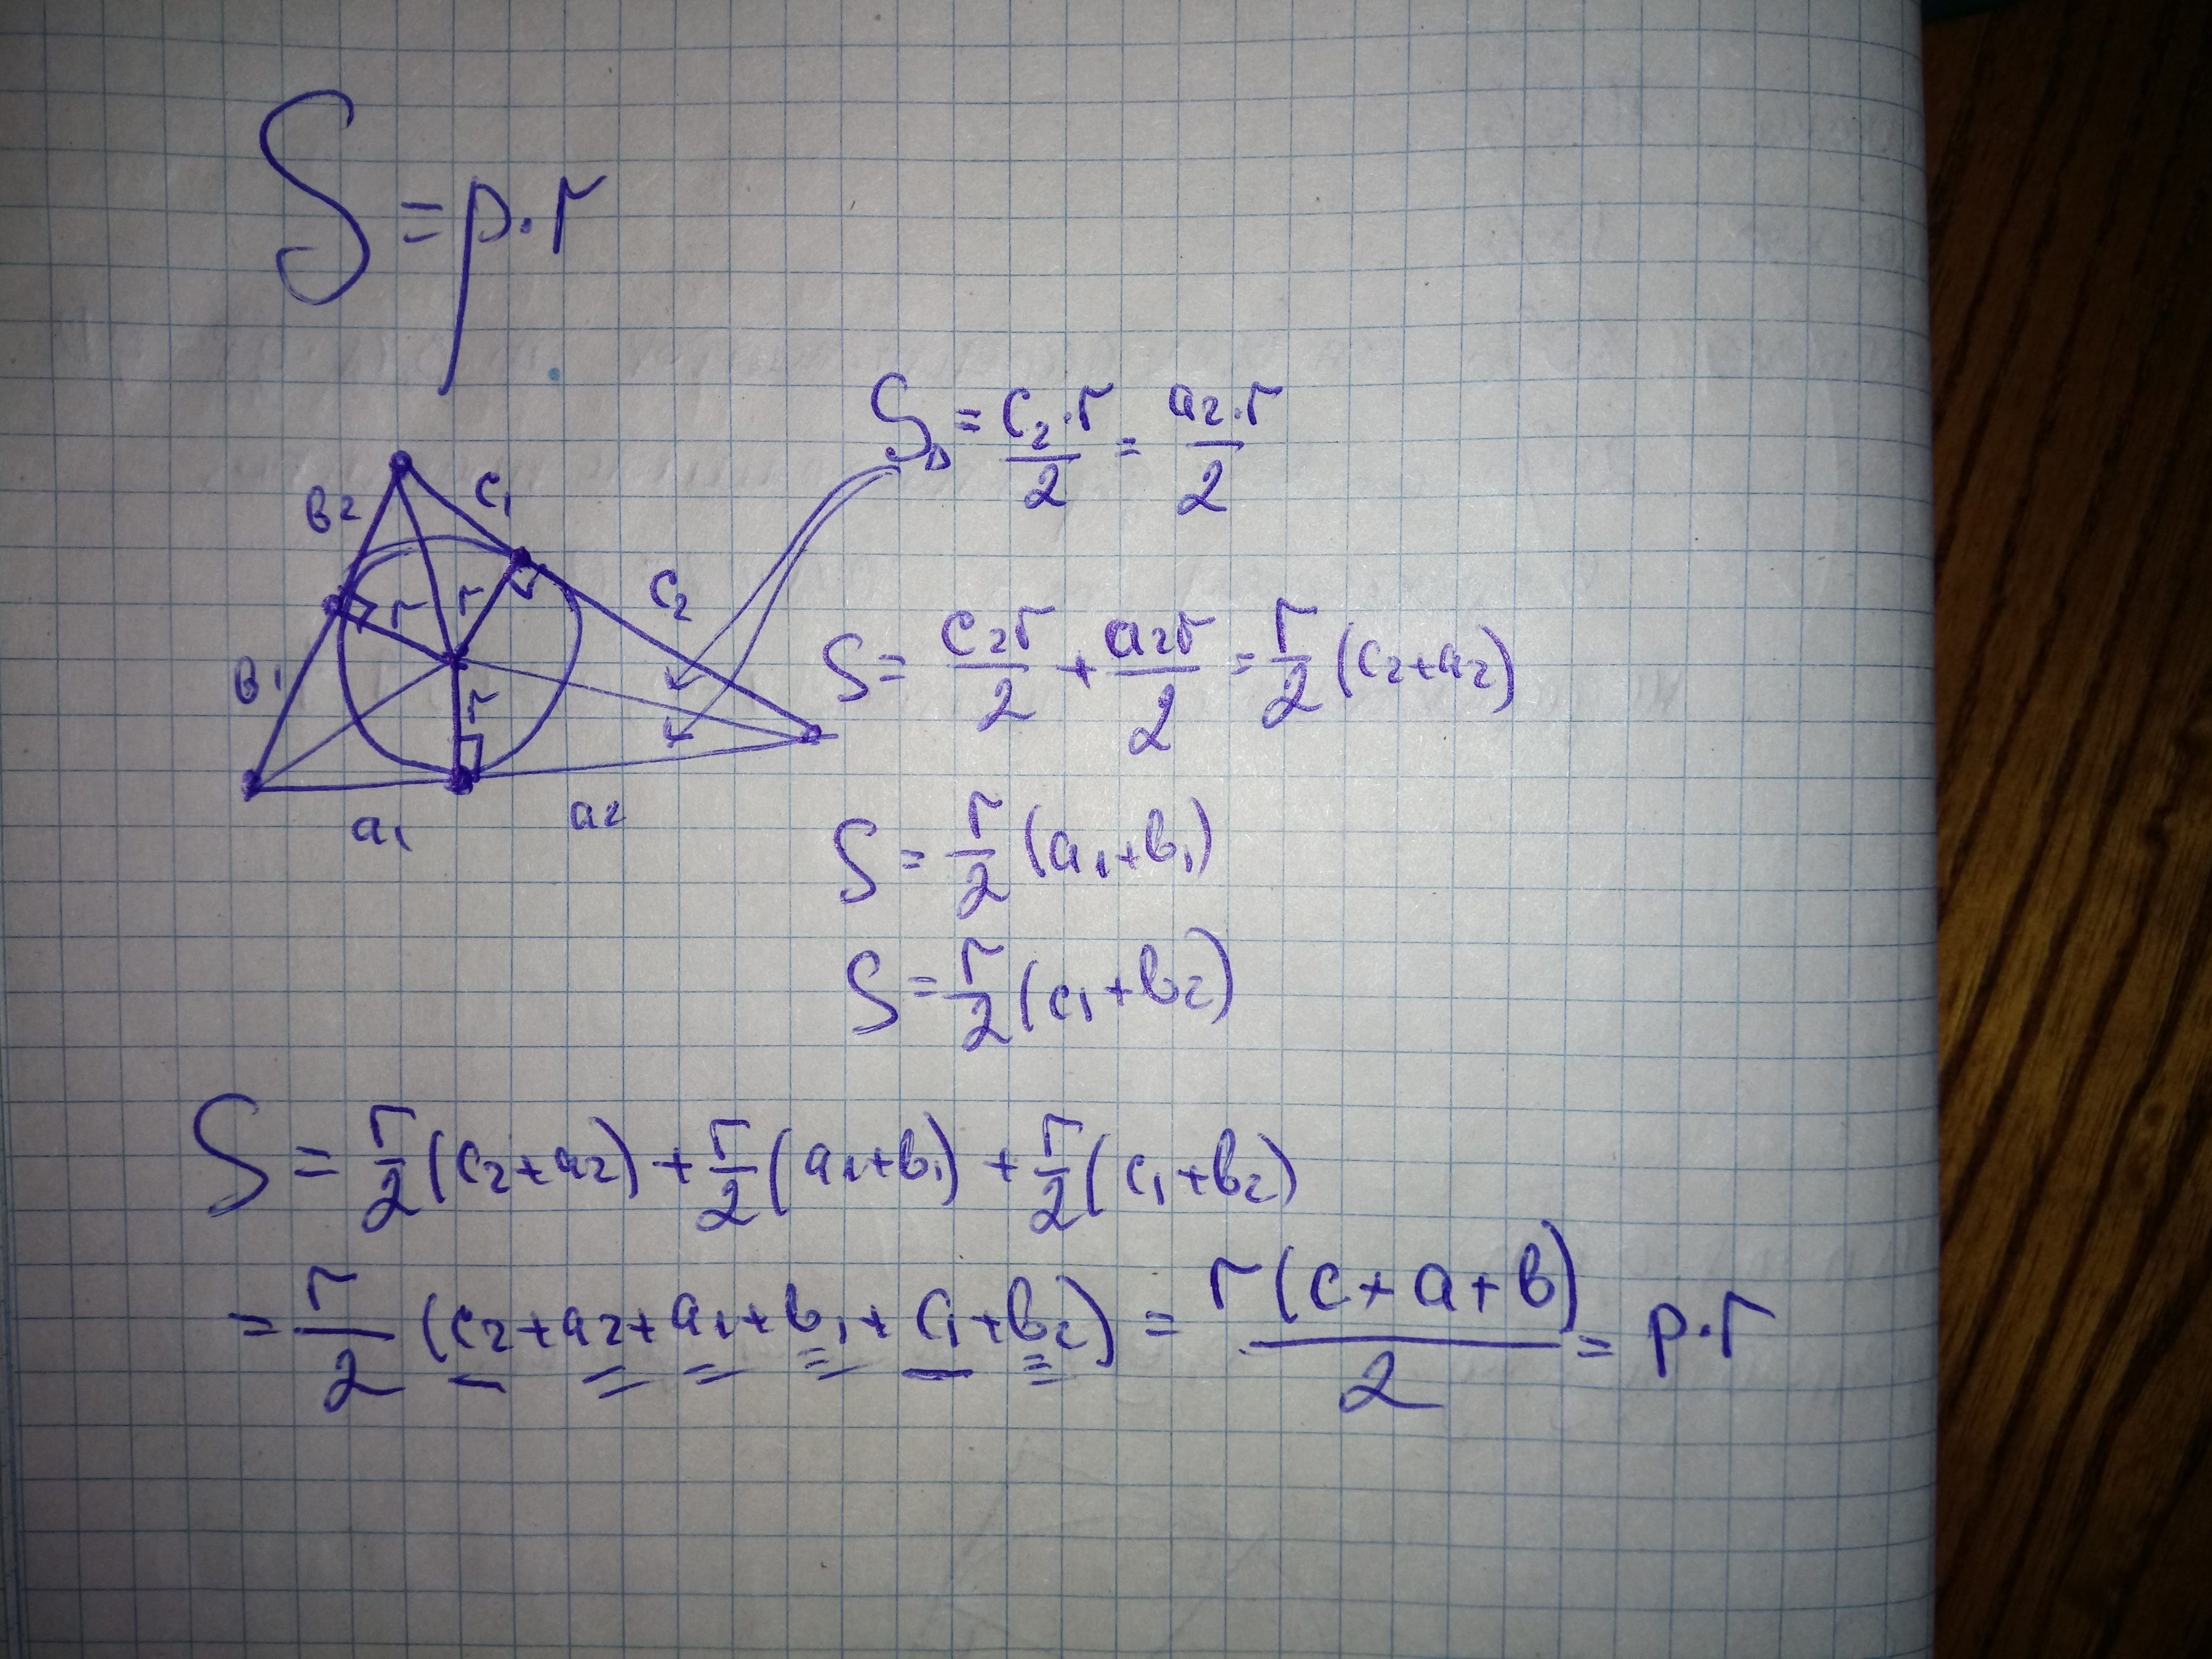 S = p·r
S△ = c₂·r/2 = a₂·r/2
в₂ c₁
r r c₂
в₁ r
a₁ a₂
S = c₂r/2 + a₂r/2 = r/2 (c₂+a₂)
S = r/2 (a₁+b₁)
S = r/2 (c₁+b₂)
S = r/2 (c₂+a₂) + r/2 (a₁+b₁) + r/2 (c₁+b₂)
= r/2 (c₂+a₂+a₁+b₁+c₁+b₂) = r(c+a+b)/2 = p·r